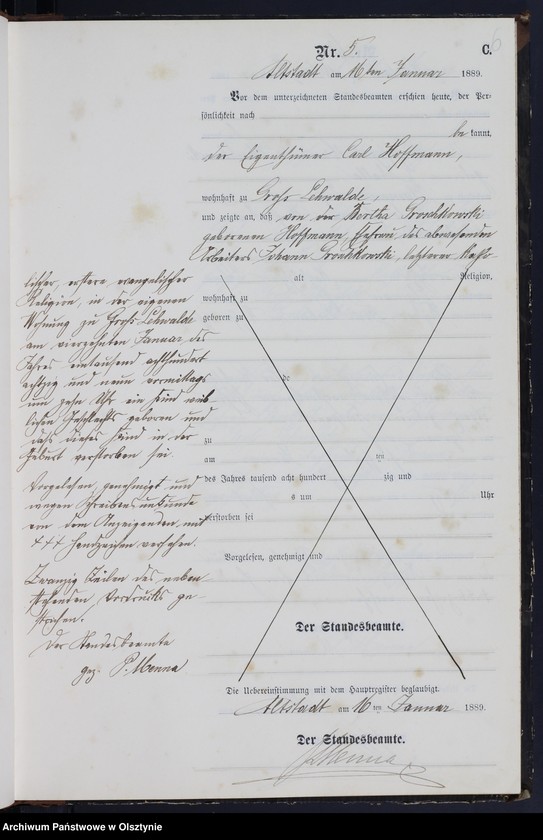 6
Nr. 5. C.
Altstadt am 16ten Januar 1889.
Vor dem unterzeichneten Standesbeamten erschien heute, der Per-
sönlichkeit nach
be kannt,
der Eigenthümer Carl Hoffmann,
wohnhaft zu Groß Lehwalde,
und zeigte an, daß von der Bertha
geborenen Hoffmann, Ehefrau des abwesenden
Arbeiters Johann letzterer katho-
alt Religion,
wohnhaft zu
geboren zu
de
zu
am ten
des Jahres tausend acht hundert zig und
s um Uhr
verstorben sei
Vorgelesen, genehmigt und
lischer, erstere evangelischer
Religion, in der eigenen
Wohnung zu Groß Lehwalde
am vierzehnten Januar des
Jahres eintausend achthundert
achtzig und neun vormittags
um zehn Uhr ein Kind weib-
lichen Geschlechts geboren und
daß dieses Kind in der
Geburt verstorben sei.
Vorgelesen, genehmigt und
wegen Schreibensunkunde
von dem Anzeigenden mit
+++ Handzeichen versehen.
Zwanzig Zeilen des neben-
stehenden Vordrucks ge-
strichen.
Der Standesbeamte
gez. P. Menna
Der Standesbeamte.
Die Uebereinstimmung mit dem Hauptregister beglaubigt.
Altstadt am 16ten Januar 1889.
Der Standesbeamte.
Menna
Archiwum Państwowe w Olsztynie